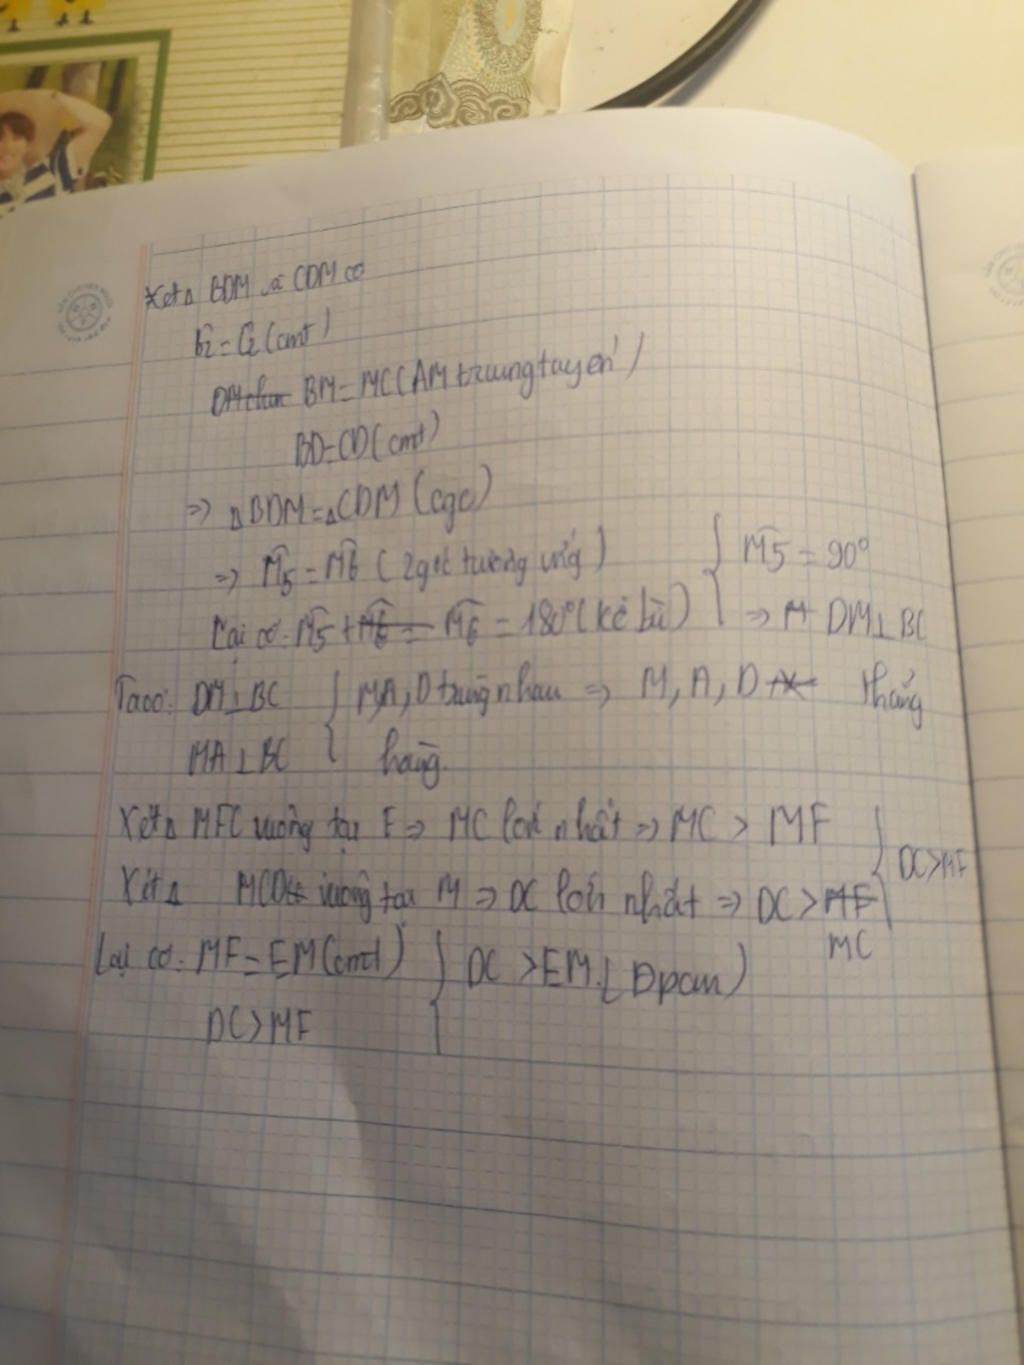 Xét Δ BDM và CDM có
B̂2 = Ĉ2 (cmt)
DM chun BM = MC (AM trung tuyến)
BD = CD (cmt)
=> Δ BDM = Δ CDM (cgc)
=> M̂5 = M̂6 (2 góc tương ứng) } M̂5 = 90°
Lại có: M̂5 + M̂6 = M̂6 = 180° (kề bù) } => M DM ⊥ BC
Ta có: DM ⊥ BC } MA, D trùng nhau => M, A, D thẳng
MA ⊥ BC } hàng.
Xét Δ MFC vuông tại F => MC lớn nhất => MC > MF } DC > MF
Xét Δ MCD vuông tại M => DC lớn nhất => DC > MF
MC
Lại có: MF = EM (cmt) } DC > EM. (Đpcm)
DC > MF